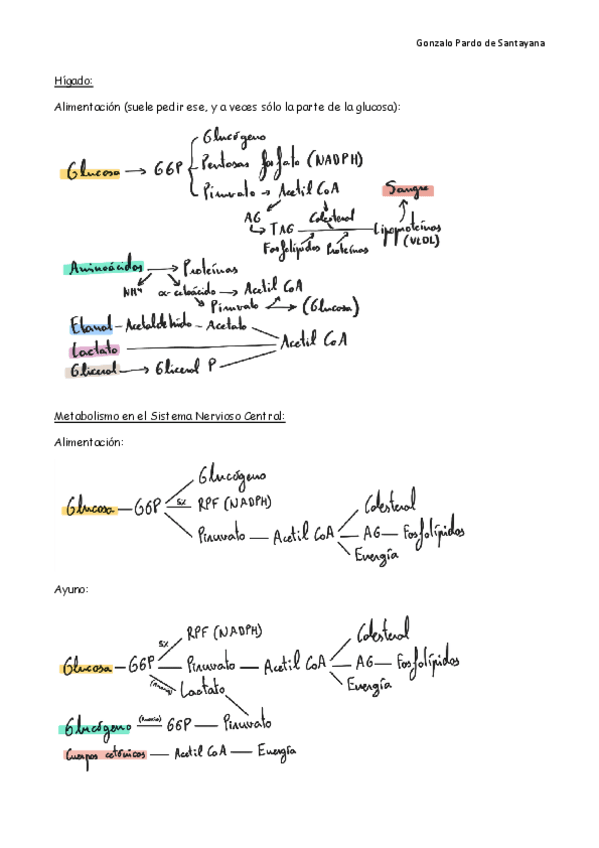 Gonzalo Pardo de Santayana
Hígado:
Alimentación (suele pedir ese, y a veces sólo la parte de la glucosa):
Glucógeno
Glucosa → G6P Pentosas fosfato (NADPH)
Piruvato → Acetil CoA Sangre
AG Colesterol
TAG Lipoproteínas
Fosfolípidos Proteínas (VLDL)
Aminoácidos → Proteínas
NH⁴ α-cetoácido → Acetil CoA
Piruvato → (Glucosa)
Etanol - Acetaldehído - Acetato
Lactato Acetil CoA
Glicerol → Glicerol P
Metabolismo en el Sistema Nervioso Central:
Alimentación:
Glucógeno
Glucosa - G6P 5% RPF (NADPH) Colesterol
Piruvato - Acetil CoA AG - Fosfolípidos
Energía
Ayuno:
5% RPF (NADPH) Colesterol
Glucosa - G6P Piruvato - Acetil CoA AG - Fosfolípidos
Lactato Energía
Glucógeno G6P - Piruvato
Cuerpos cetónicos - Acetil CoA - Energía